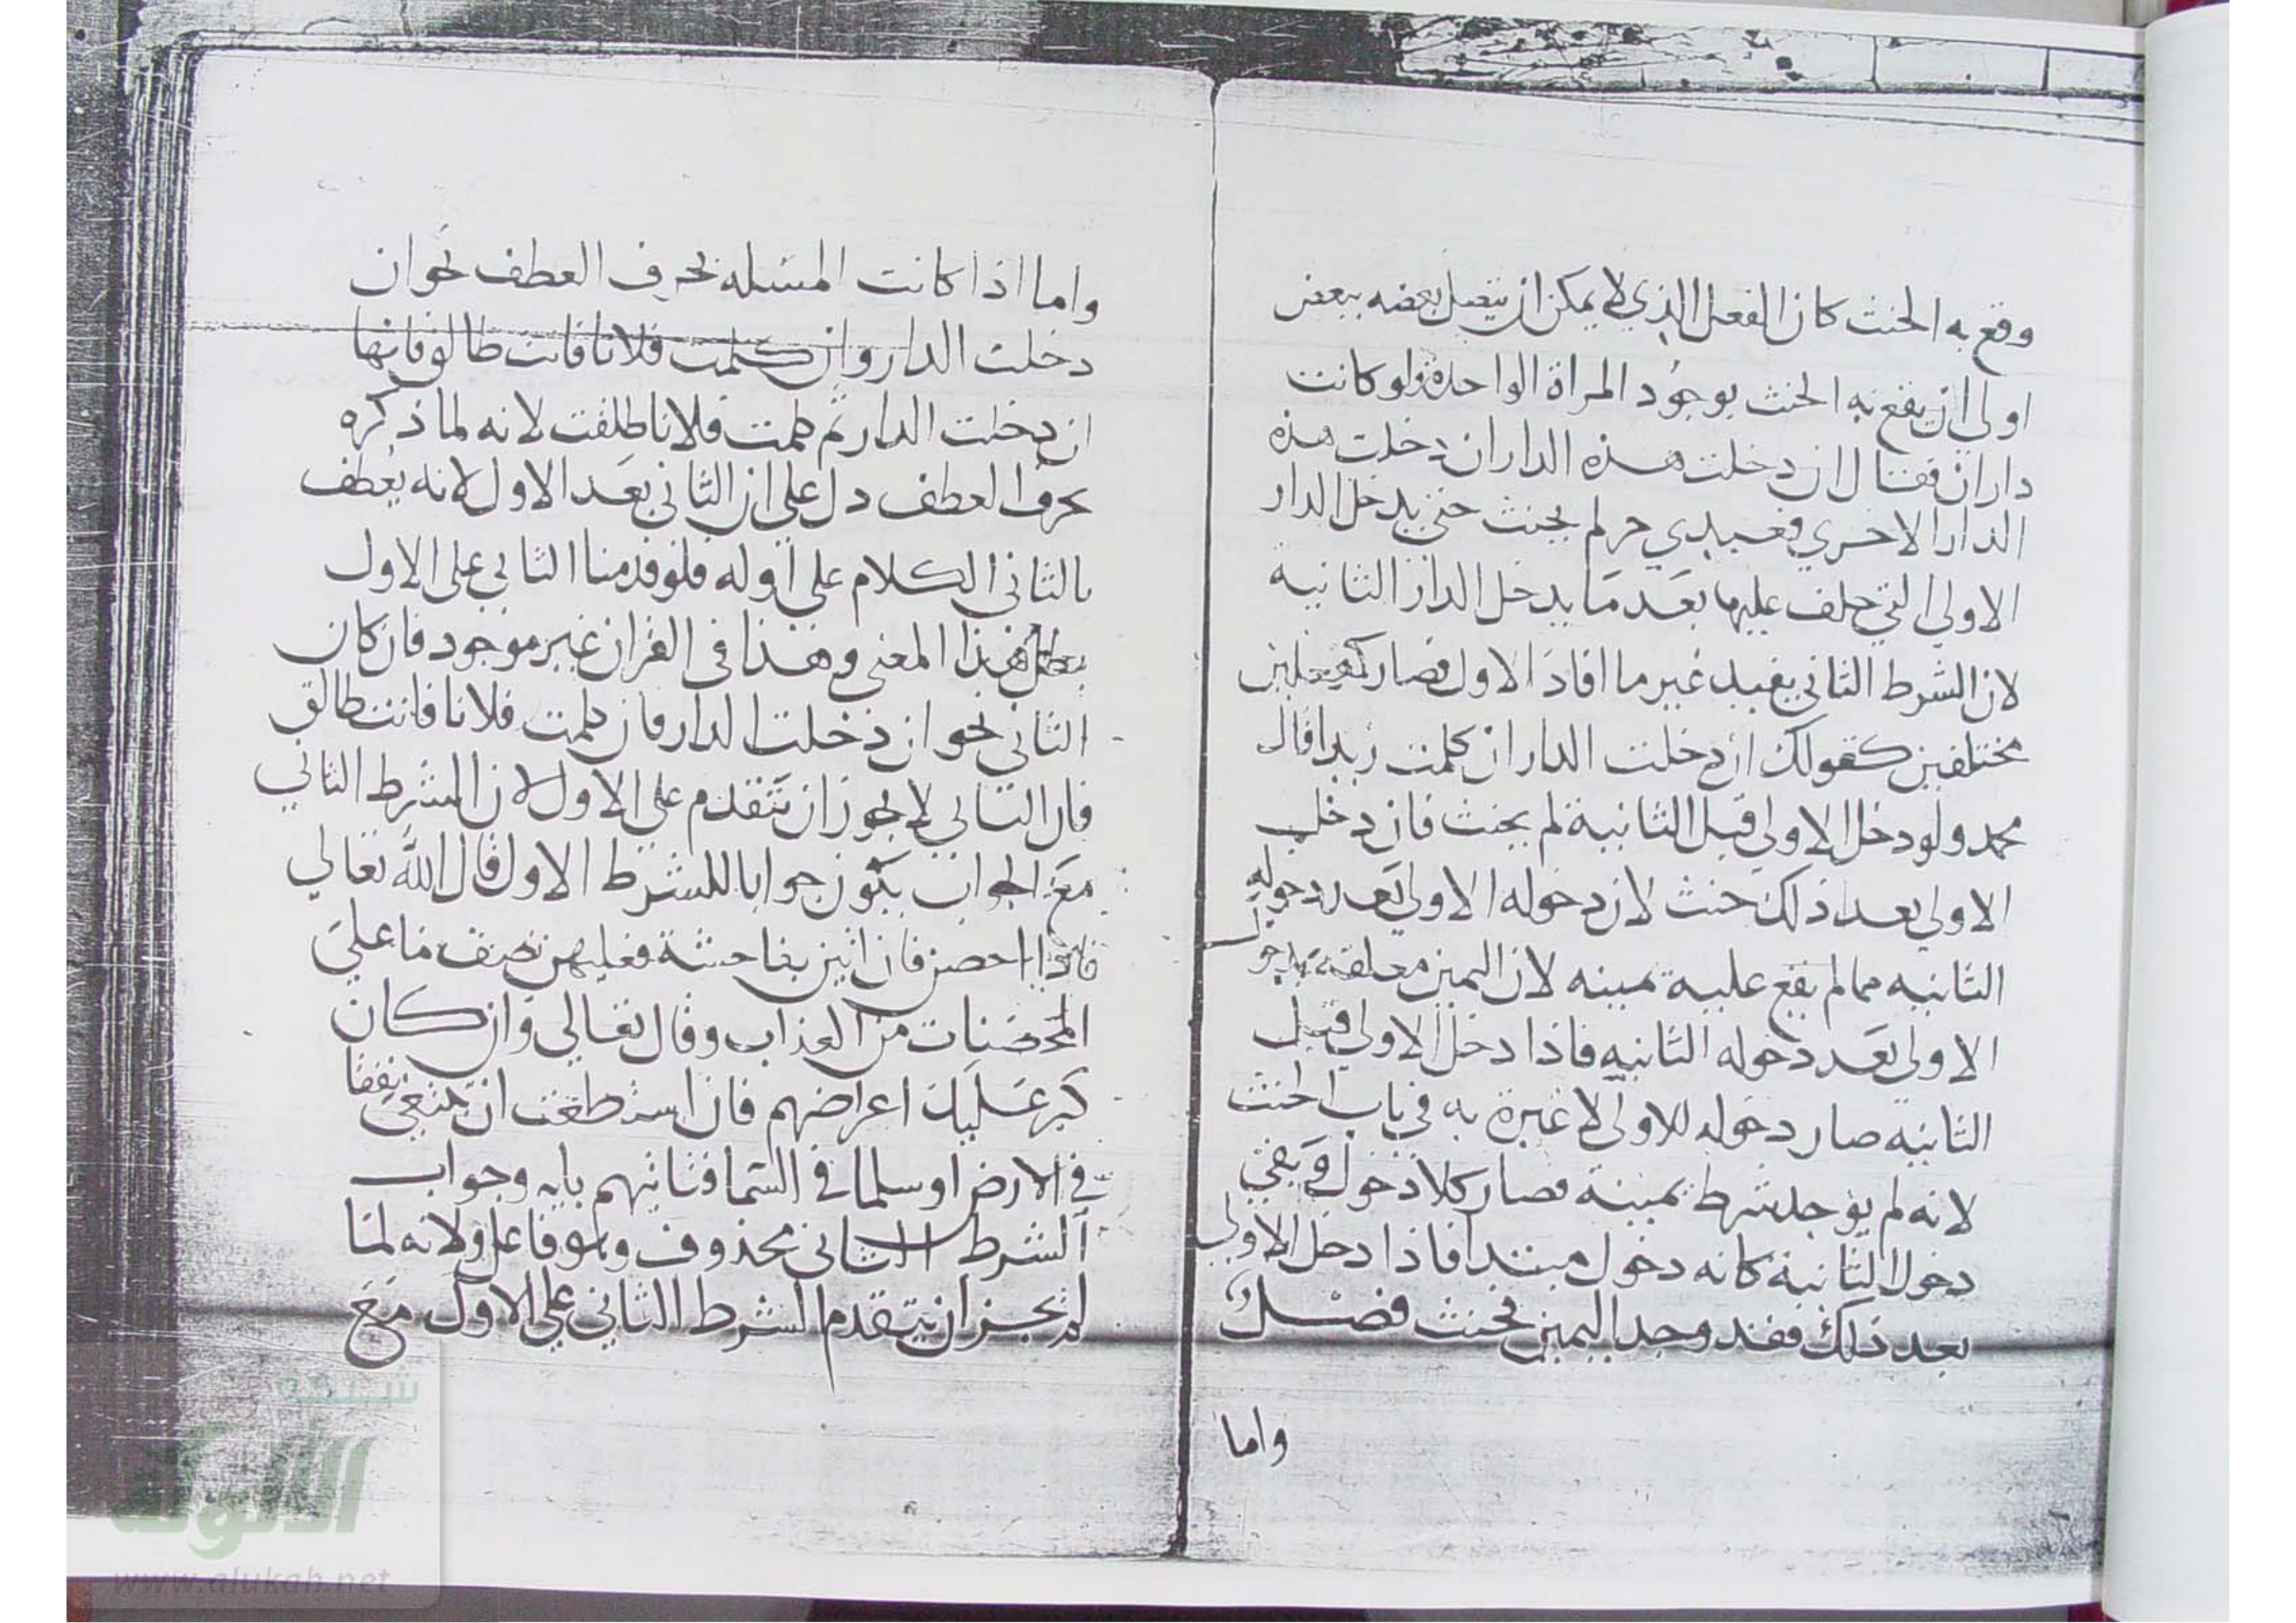 وقع به الحنث كان الفعل الذي لا يمكن ان يتصل بعضه ببعض
اولي ان يقع به الحنث بوجود المراة الواحدة ولو كانت
داران فقال ان دخلت هذه الدار ان دخلت هذه
الدار الاخري فعبدي حر لم يحنث حتي يدخل الدار
الاولي التي حلف عليها بعد ما يدخل الدار الثانية
لان الشرط الثاني يفيد غير ما افاد الاول فصار كفعلين
مختلفين كقولك ان دخلت الدار ان كلمت زيدا قال
محمد ولو دخل الاولي قبل الثانية لم يحنث فان دخلـ
الاولي بعد ذلك حنث لان دخوله الاولي بعد دخوله
الثانيه مما لم يقع عليه يمينه لان اليمين معلقة بدخول
الاولي بعد دخوله الثانيه فاذا دخل الاولي قبل
الثانيه صار دخوله للاولي لا عبرة به في باب الحنث
لانه لم يوجد شرط يمينه فصار كلا دخول وبقي
دخول الثانية كانه دخول مبتدا فاذا دخل الاولي
بعد ذلك فقد وجد اليمين فحنث فصل
واما
واما اذا كانت المسئله بحرف العطف نحو ان
دخلت الدار وان كلمت فلانا فانت طالق فانها
ان دخلت الدار ثم كلمت فلانا طلقت لانه لما ذكره
بحرف العطف دل علي ان الثاني بعد الاول لانه يعطف
بالثاني الكلام علي اوله فلو قدمنا الثاني علي الاول
بطل هذا المعني وهذا في القران غير موجود فان كان
الثاني نحو ان دخلت الدار فان كلمت فلانا فانت طالق
فان الثاني لا يجوز ان يتقدم علي الاول لان الشرط الثاني
مع الجواب يكون جوابا للشرط الاول قال الله تعالي
فاذا احصن فان اتين بفاحشة فعليهن نصف ما علي
المحصنات من العذاب وقال تعالي وان كان
كبر عليك اعراضهم فان استطعت ان تبتغي نفقا
في الارض او سلما في السما فتاتيهم بايه وجواب
الشرط الثاني محذوف وهو فافعل ولانه لما
لم يجز ان يتقدم الشرط الثاني علي الاول مع
شبكة
الألوكة
www.alukah.net